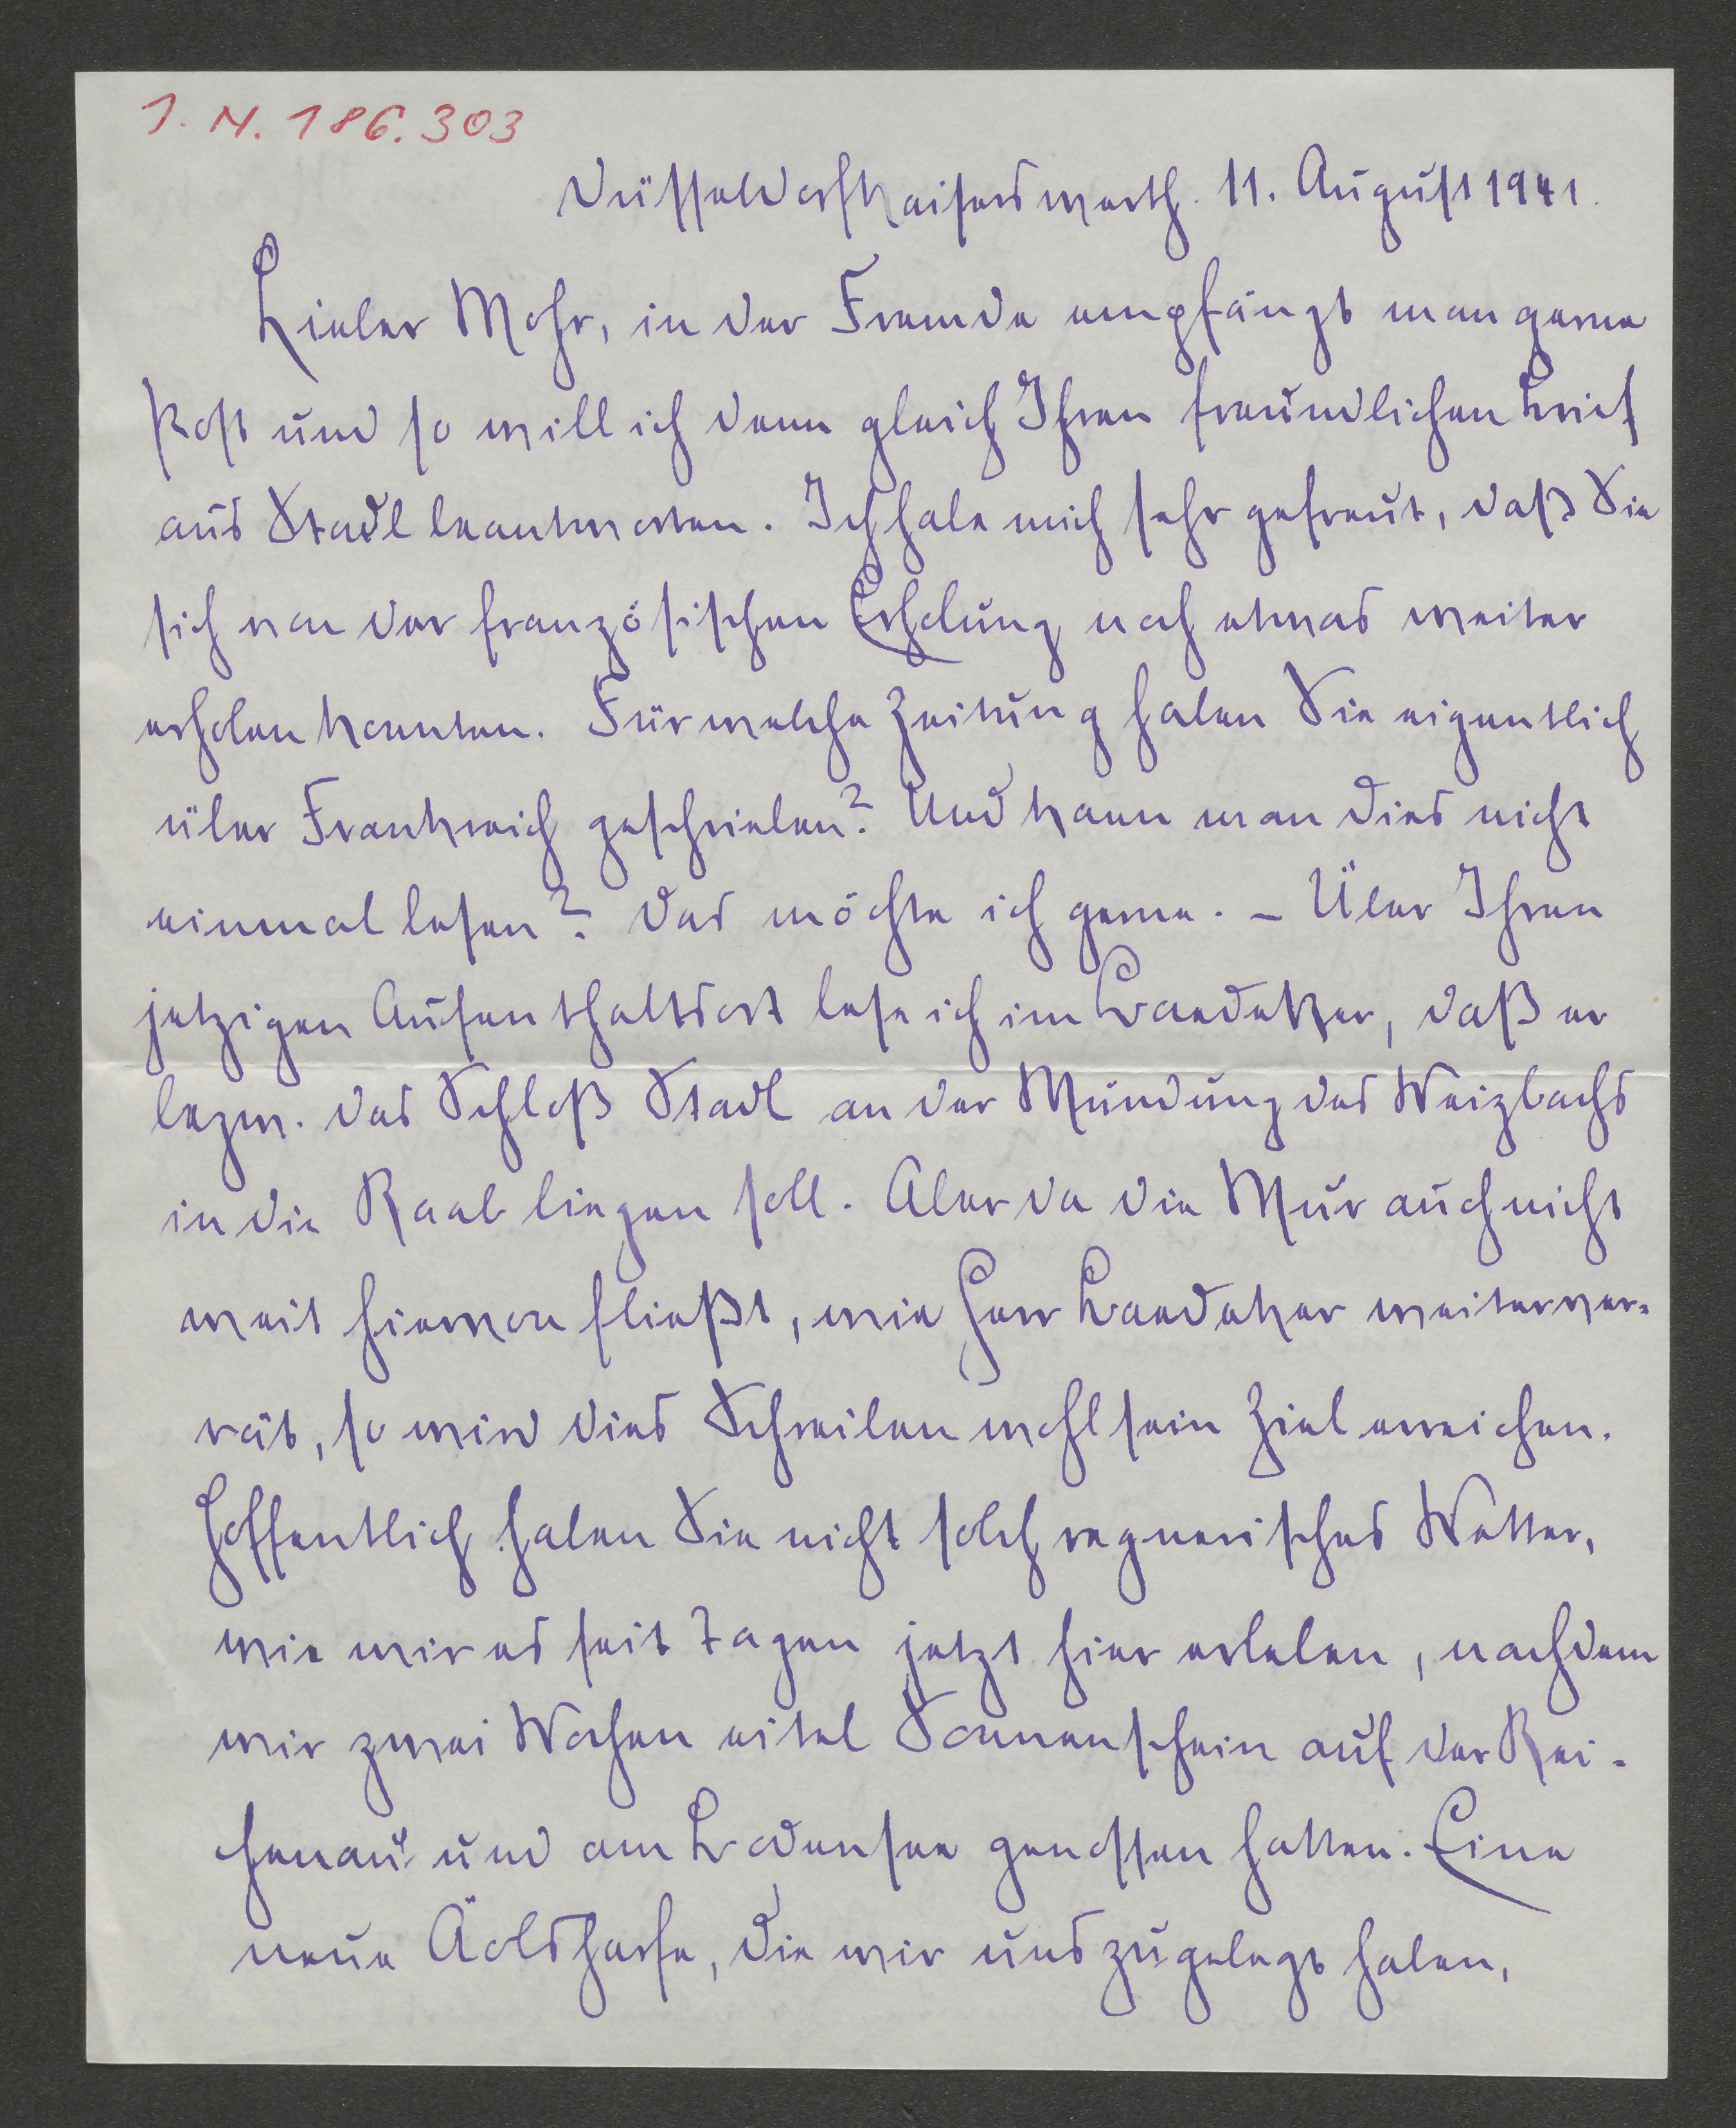 J. N. 186.303
Düsseldorfkaiserswerth. 11. August 1941.
Lieber Mohr, in der Fremde empfängt man gerne
Post und so will ich denn gleich Ihren freundlichen Brief
aus Stadl beantworten. Ich habe mich sehr gefreut, daß Sie
sich von der französischen Erholung noch etwas weiter
erholen konnten. Für welche Zeitung haben Sie eigentlich
über Frankreich geschrieben? Und kann man dies nicht
einmal lesen? Das möchte ich gerne. – Über Ihren
jetzigen Aufenthaltsort lese ich im Baedeker, daß er
bezw. das Schloß Stadl an der Mündung des Weizbachs
in die Raab liegen soll. Aber da die Mur auch nicht
weit hiervon fließt, wie Herr Baedeker weiterver-
rät, so wird dies Schreiben wohl sein Ziel erreichen.
Hoffentlich haben Sie nicht solch regnerisches Wetter,
wie wir es seit Tagen jetzt hier erleben, nachdem
wir zwei Wochen eitel Sonnenschein auf der Rei-
chenau und am Bodensee genossen hatten. Eine
neue Äolsharfe, die wir uns zugelegt haben,